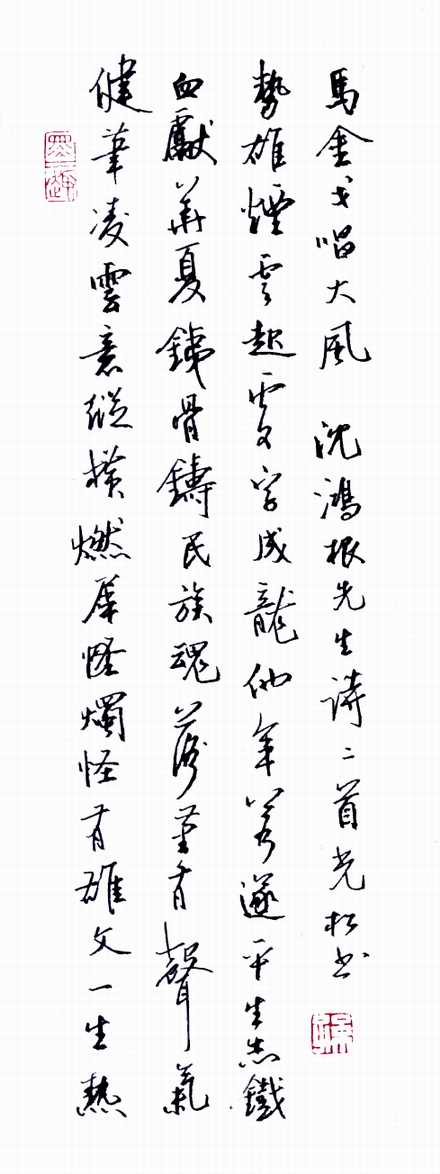 健筆凌雲意縱橫燃犀怪燭怪有雄文一生熱
血獻華夏銕骨鑄民族魂落筆有聲氣
勢雄煙雲起處字成龍他年若遂平生志鐵
馬金戈唱大風 沈鴻根先生詩二首光松书